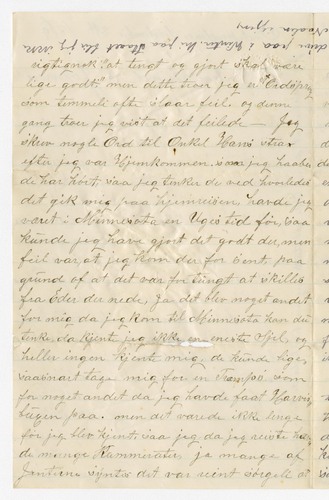 rigtignok "at tengt og gjort skal være
lige godt" men dette troer jeg er Ordsprog
som temmeli ofte slaar feil og denne
gang troer jeg vist at det feilede — Jeg
skrev nogle Ord til Onkel Hans strax
efter jeg var Hjemkommen, saa jeg haaber
de har Tvort, saa jeg tenker de ved hvorledes
det gik mig paa hjemreisen, havde jeg
været i Minnesota en Uges tid før, saa
kunde jeg have gjort det godt der, men
feil var, at jeg kom der for sent paa
grund af at det var for tungt at skilles
fra Eder der nede, Ja det blev noget andet
for mig da jeg kom til Minnesota kan du
tenke, da kjente jeg ikke en eneste Sjel, og
heller ingen kjente mig, de kunde lige
saasnart tage mig for en Tramp som
for noget andet da jeg havde faat Harvis
tøgen paa. men det varede ikke lenge
før jeg blev kjent, saa jeg, da jeg reiste ha
de mange Kammerater ja mange af
Jentene syntes det var reint sørgele at